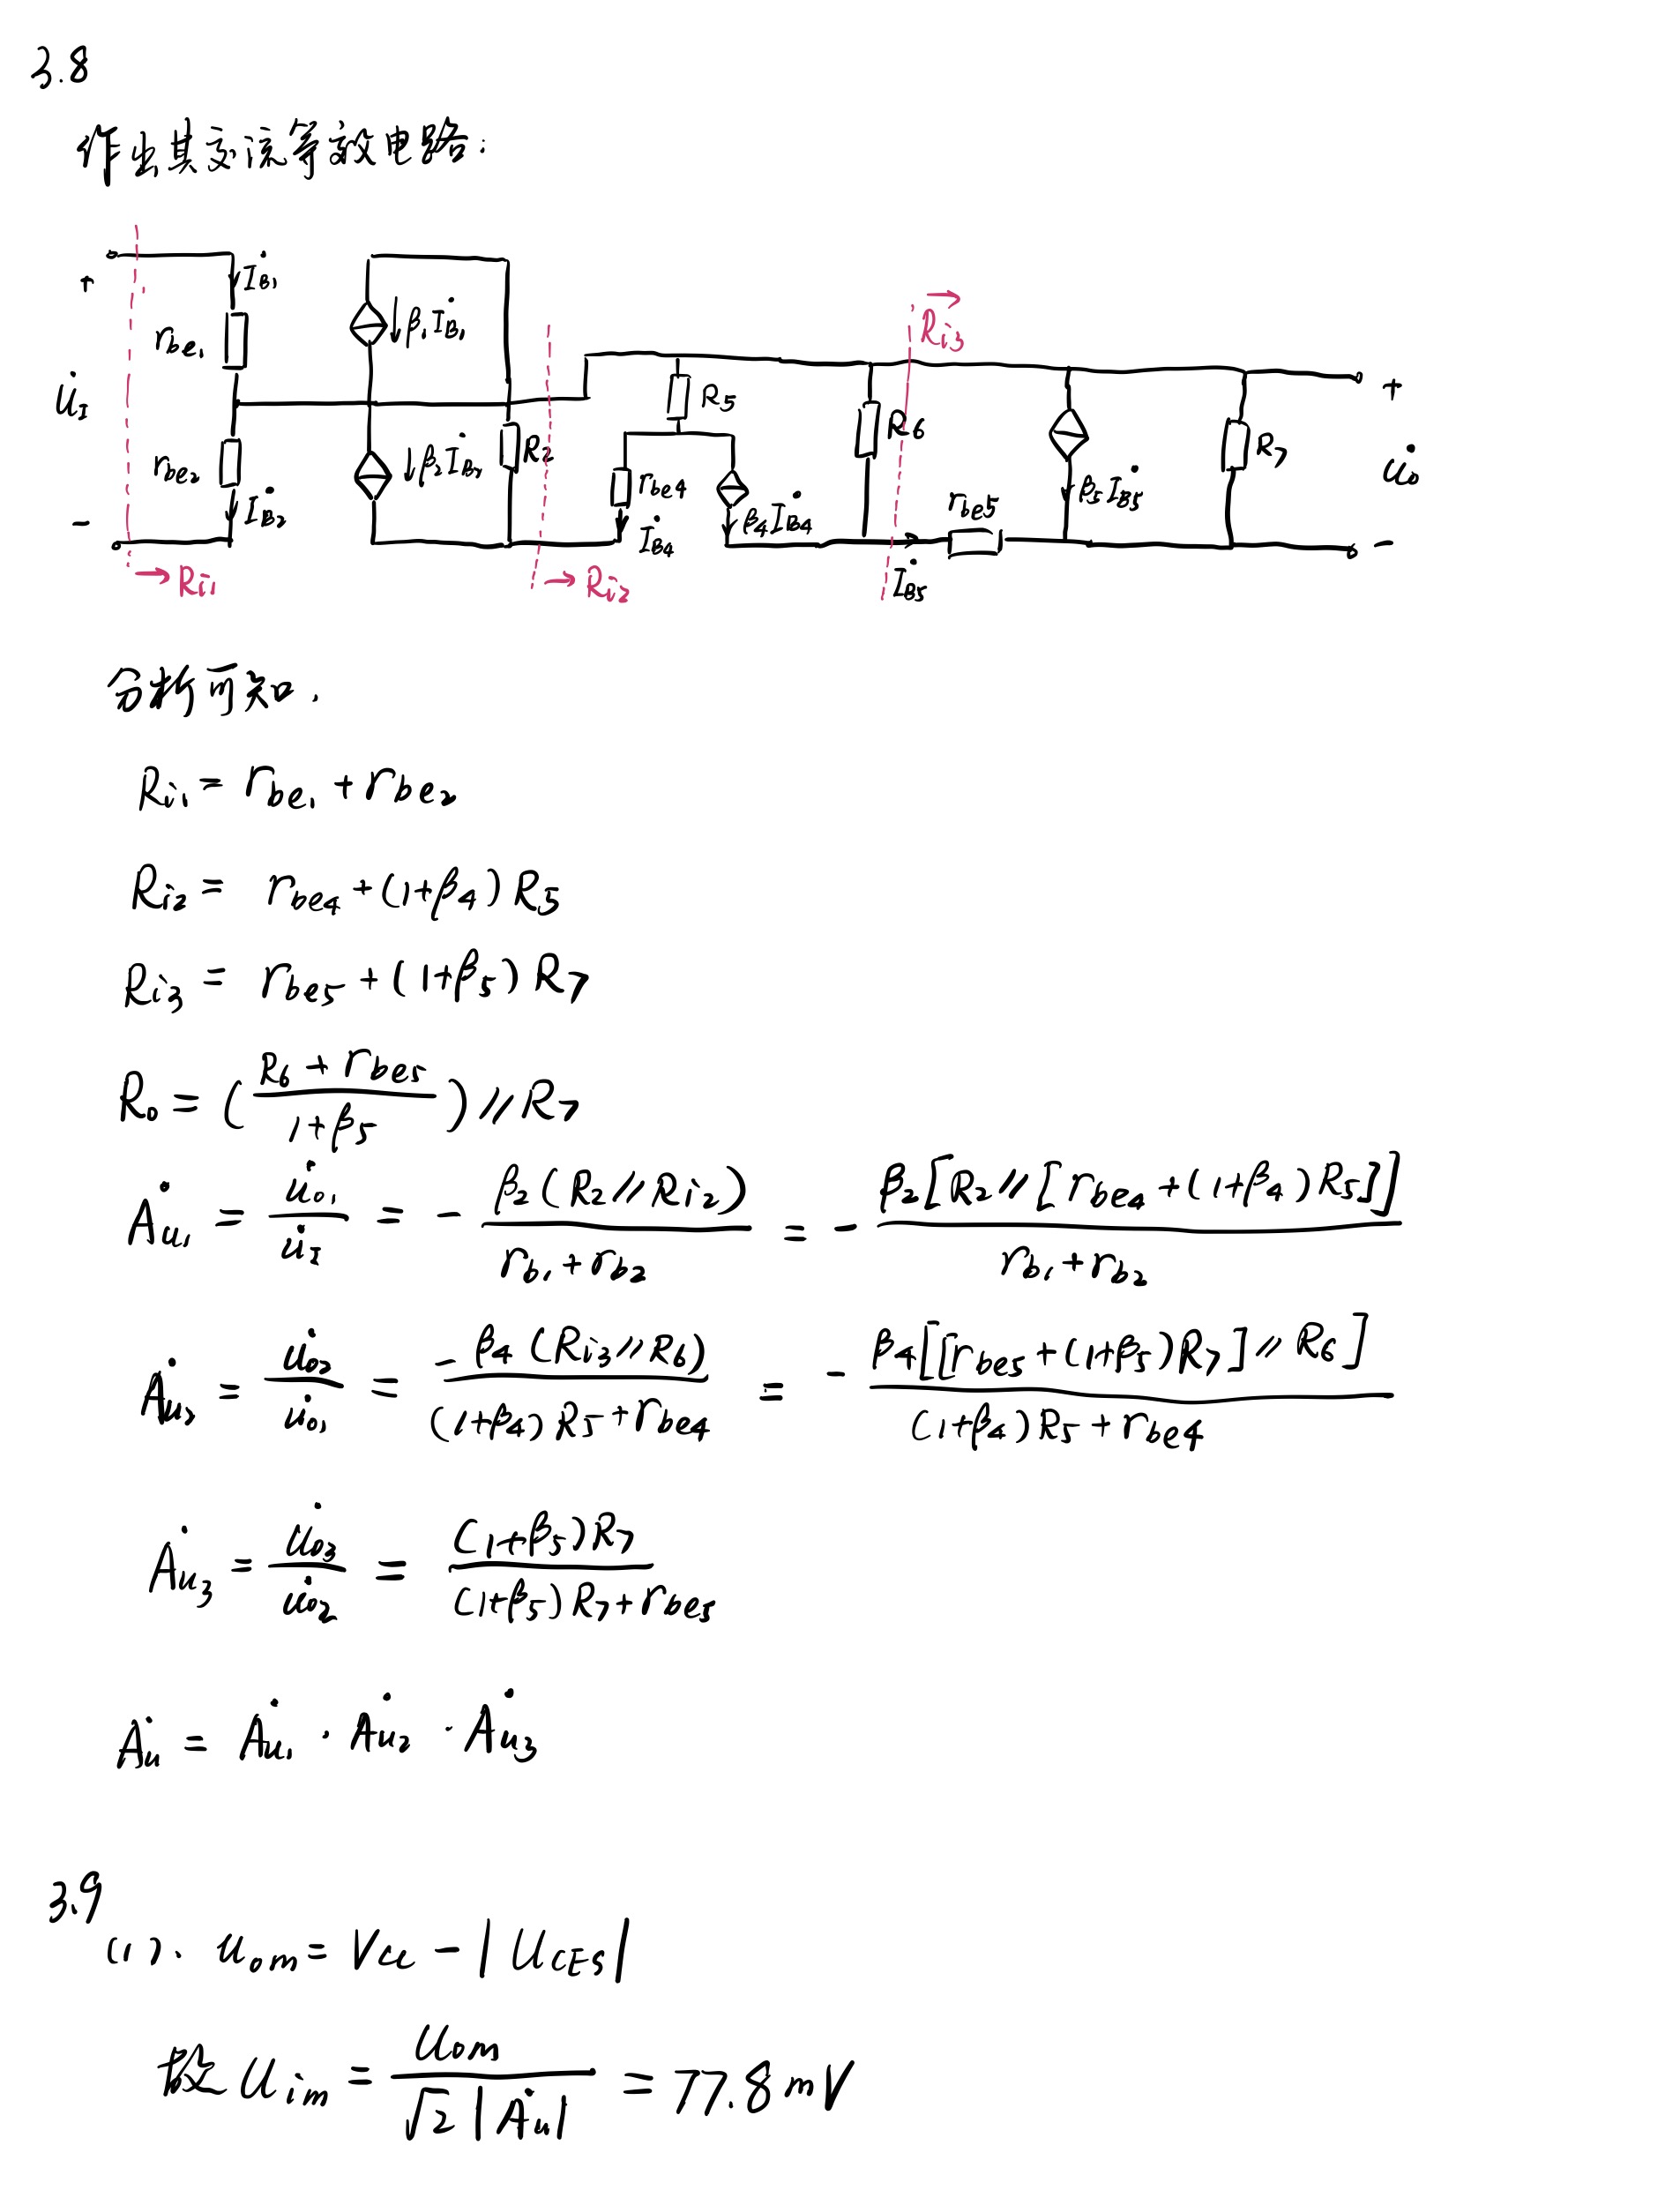 3.8
作出其交流等效电路:
+ u̇I - İB1 rbe1 rbe2 İB2 → Ri1
↓β1İB1 ↓β2İB2 R2 → Ri2
R5 rbe4 İB4 β4İB4 R6 → Ri3
rbe5 İB5 β5İB5 R7 + u̇o -
分析可知.
Ri1 = rbe1 + rbe2
Ri2 = rbe4 + (1+β4) R5
Ri3 = rbe5 + (1+β5) R7
Ro = ((R6 + rbe5)/(1+β5)) // R7
Ȧu1 = u̇o1/u̇I = - β2(R2//Ri2)/(rb1 + rb2) = - β2[R2//[rbe4 + (1+β4)R5]]/(rb1 + rb2)
Ȧu2 = u̇o2/u̇o1 = - β4(Ri3//R6)/((1+β4)R5 + rbe4) = - β4[[rbe5 + (1+β5)R7]//R6]/((1+β4)R5 + rbe4)
Ȧu3 = u̇o3/u̇o2 = (1+β5)R7/((1+β5)R7 + rbe5)
Ȧu = Ȧu1 · Ȧu2 · Ȧu3
3.9
(1). uom = Vcc - |UCES|
故 Uim = Uom/(√2 |Ȧu|) = 77.8mV